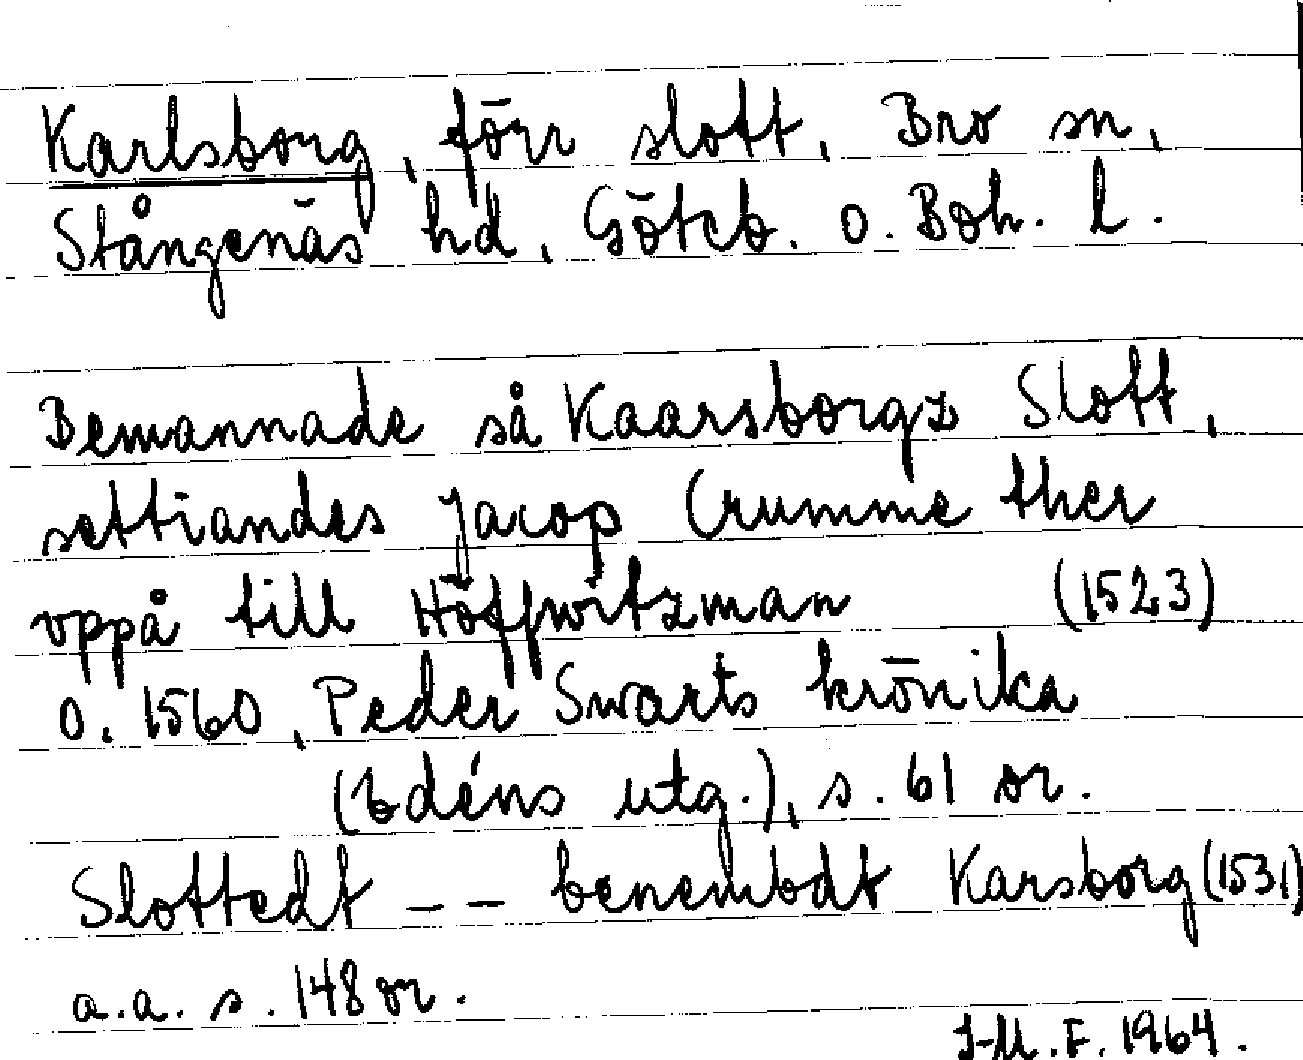 Karlsborg, förr slott, Bro sn,
Stångenäs hd, Göteb. o. Boh. l.
Bemannade så Kaarsborgz Slott,
settiandes Jacop Crumme ther
vppå till Höffwitzman (1523)
o. 1560, Peder Swarts krönika
(Edéns utg.), s. 61 or.
Slottedt -- benembdt Karsborg (1531)
a.a. s. 148 or.
I-M.F. 1964.